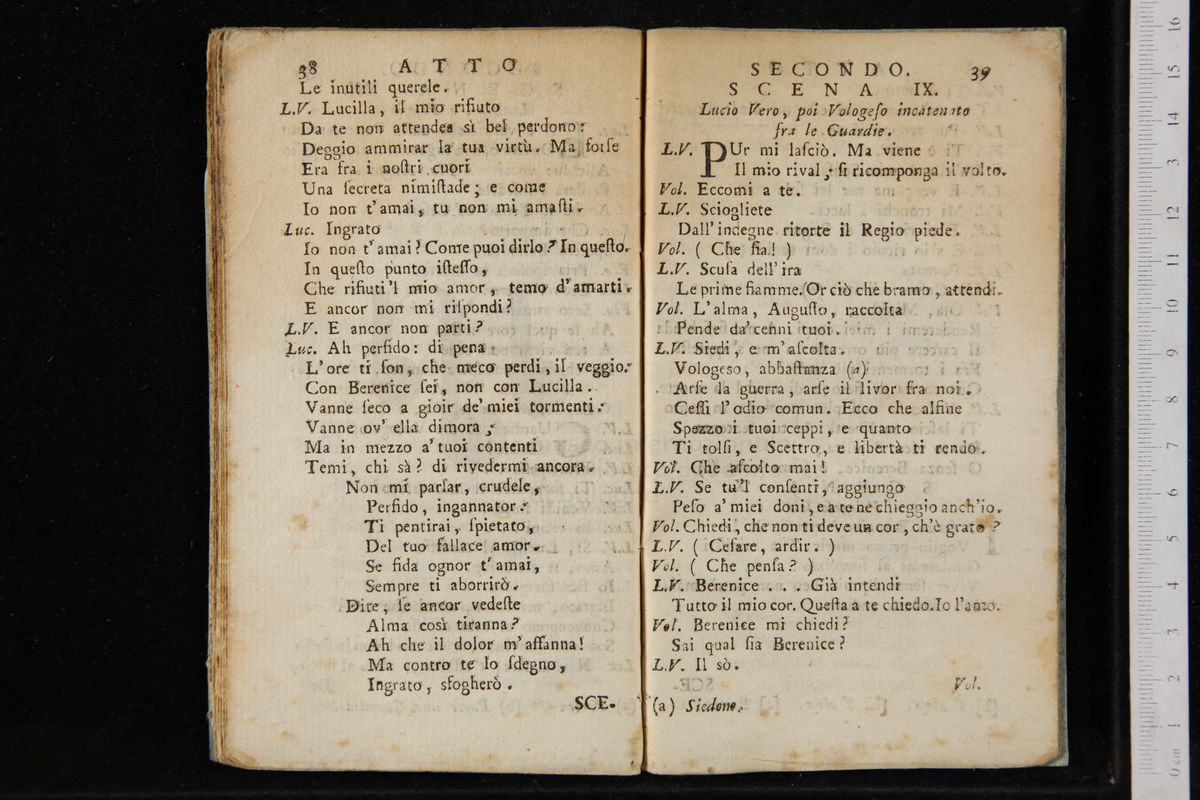 38 ATTO
Le inutili querele.
L.V. Lucilla, il mio rifiuto
Da te non attendea sì bel perdono:
Deggio ammirar la tua virtù. Ma forſe
Era fra i noſtri cuori
Una ſecreta nimiſtade; e come
Io non t'amai, tu non mi amaſti.
Luc. Ingrato
Io non t'amai? Come puoi dirlo? In queſto.
In queſto punto iſteſſo,
Che rifiuti 'l mio amor, temo d'amarti.
E ancor non mi riſpondi?
L.V. E ancor non parti?
Luc. Ah perfido: di pena
L'ore ti ſon, che meco perdi, il veggio.
Con Berenice ſei, non con Lucilla.
Vanne ſeco a gioir de' miei tormenti.
Vanne ov' ella dimora;
Ma in mezzo a' tuoi contenti
Temi, chi sà? di rivedermi ancora.
Non mi parlar, crudele,
Perfido, ingannator.
Ti pentirai, ſpietato,
Del tuo fallace amor.
Se fida ognor t'amai,
Sempre ti aborrirò.
Dite, ſe ancor vedeſte
Alma così tiranna?
Ah che il dolor m'affanna!
Ma contro te lo ſdegno,
Ingrato, sfogherò.
SCE-
SECONDO. 39
SCENA IX.
Lucio Vero, poi Vologeſo incatenato
fra le Guardie.
L.V. PUr mi laſciò. Ma viene
Il mio rival; ſi ricomponga il volto.
Vol. Eccomi a te.
L.V. Sciogliete
Dall' indegne ritorte il Regio piede.
Vol. ( Che fia! )
L.V. Scuſa dell' ira
Le prime fiamme. Or ciò che bramo, attendi.
Vol. L'alma, Auguſto, raccolta
Pende da' cenni tuoi.
L.V. Siedi, e m'aſcolta.
Vologeso, abbaſtanza (a)
Arſe la guerra, arſe il livor fra noi.
Ceſſi l'odio comun. Ecco che alfine
Spezzo i tuoi ceppi, e quanto
Ti tolſi, e Scettro, e libertà ti rendo.
Vol. Che aſcolto mai!
L.V. Se tu 'l conſenti, aggiungo
Peſo a' miei doni, e a te ne chieggio anch'io.
Vol. Chiedi, che non ti deve un cor, ch'è grato?
L.V. ( Ceſare, ardir. )
Vol. ( Che penſa? )
L.V. Berenice . . . Già intendi
Tutto il mio cor. Queſta a te chiedo. Io l'amo.
Vol. Berenice mi chiedi?
Sai qual ſia Berenice?
L.V. Il sò.
Vol.
(a) Siedono.
0 cm 1 2 3 4 5 6 7 8 9 10 11 12 13 14 15 16